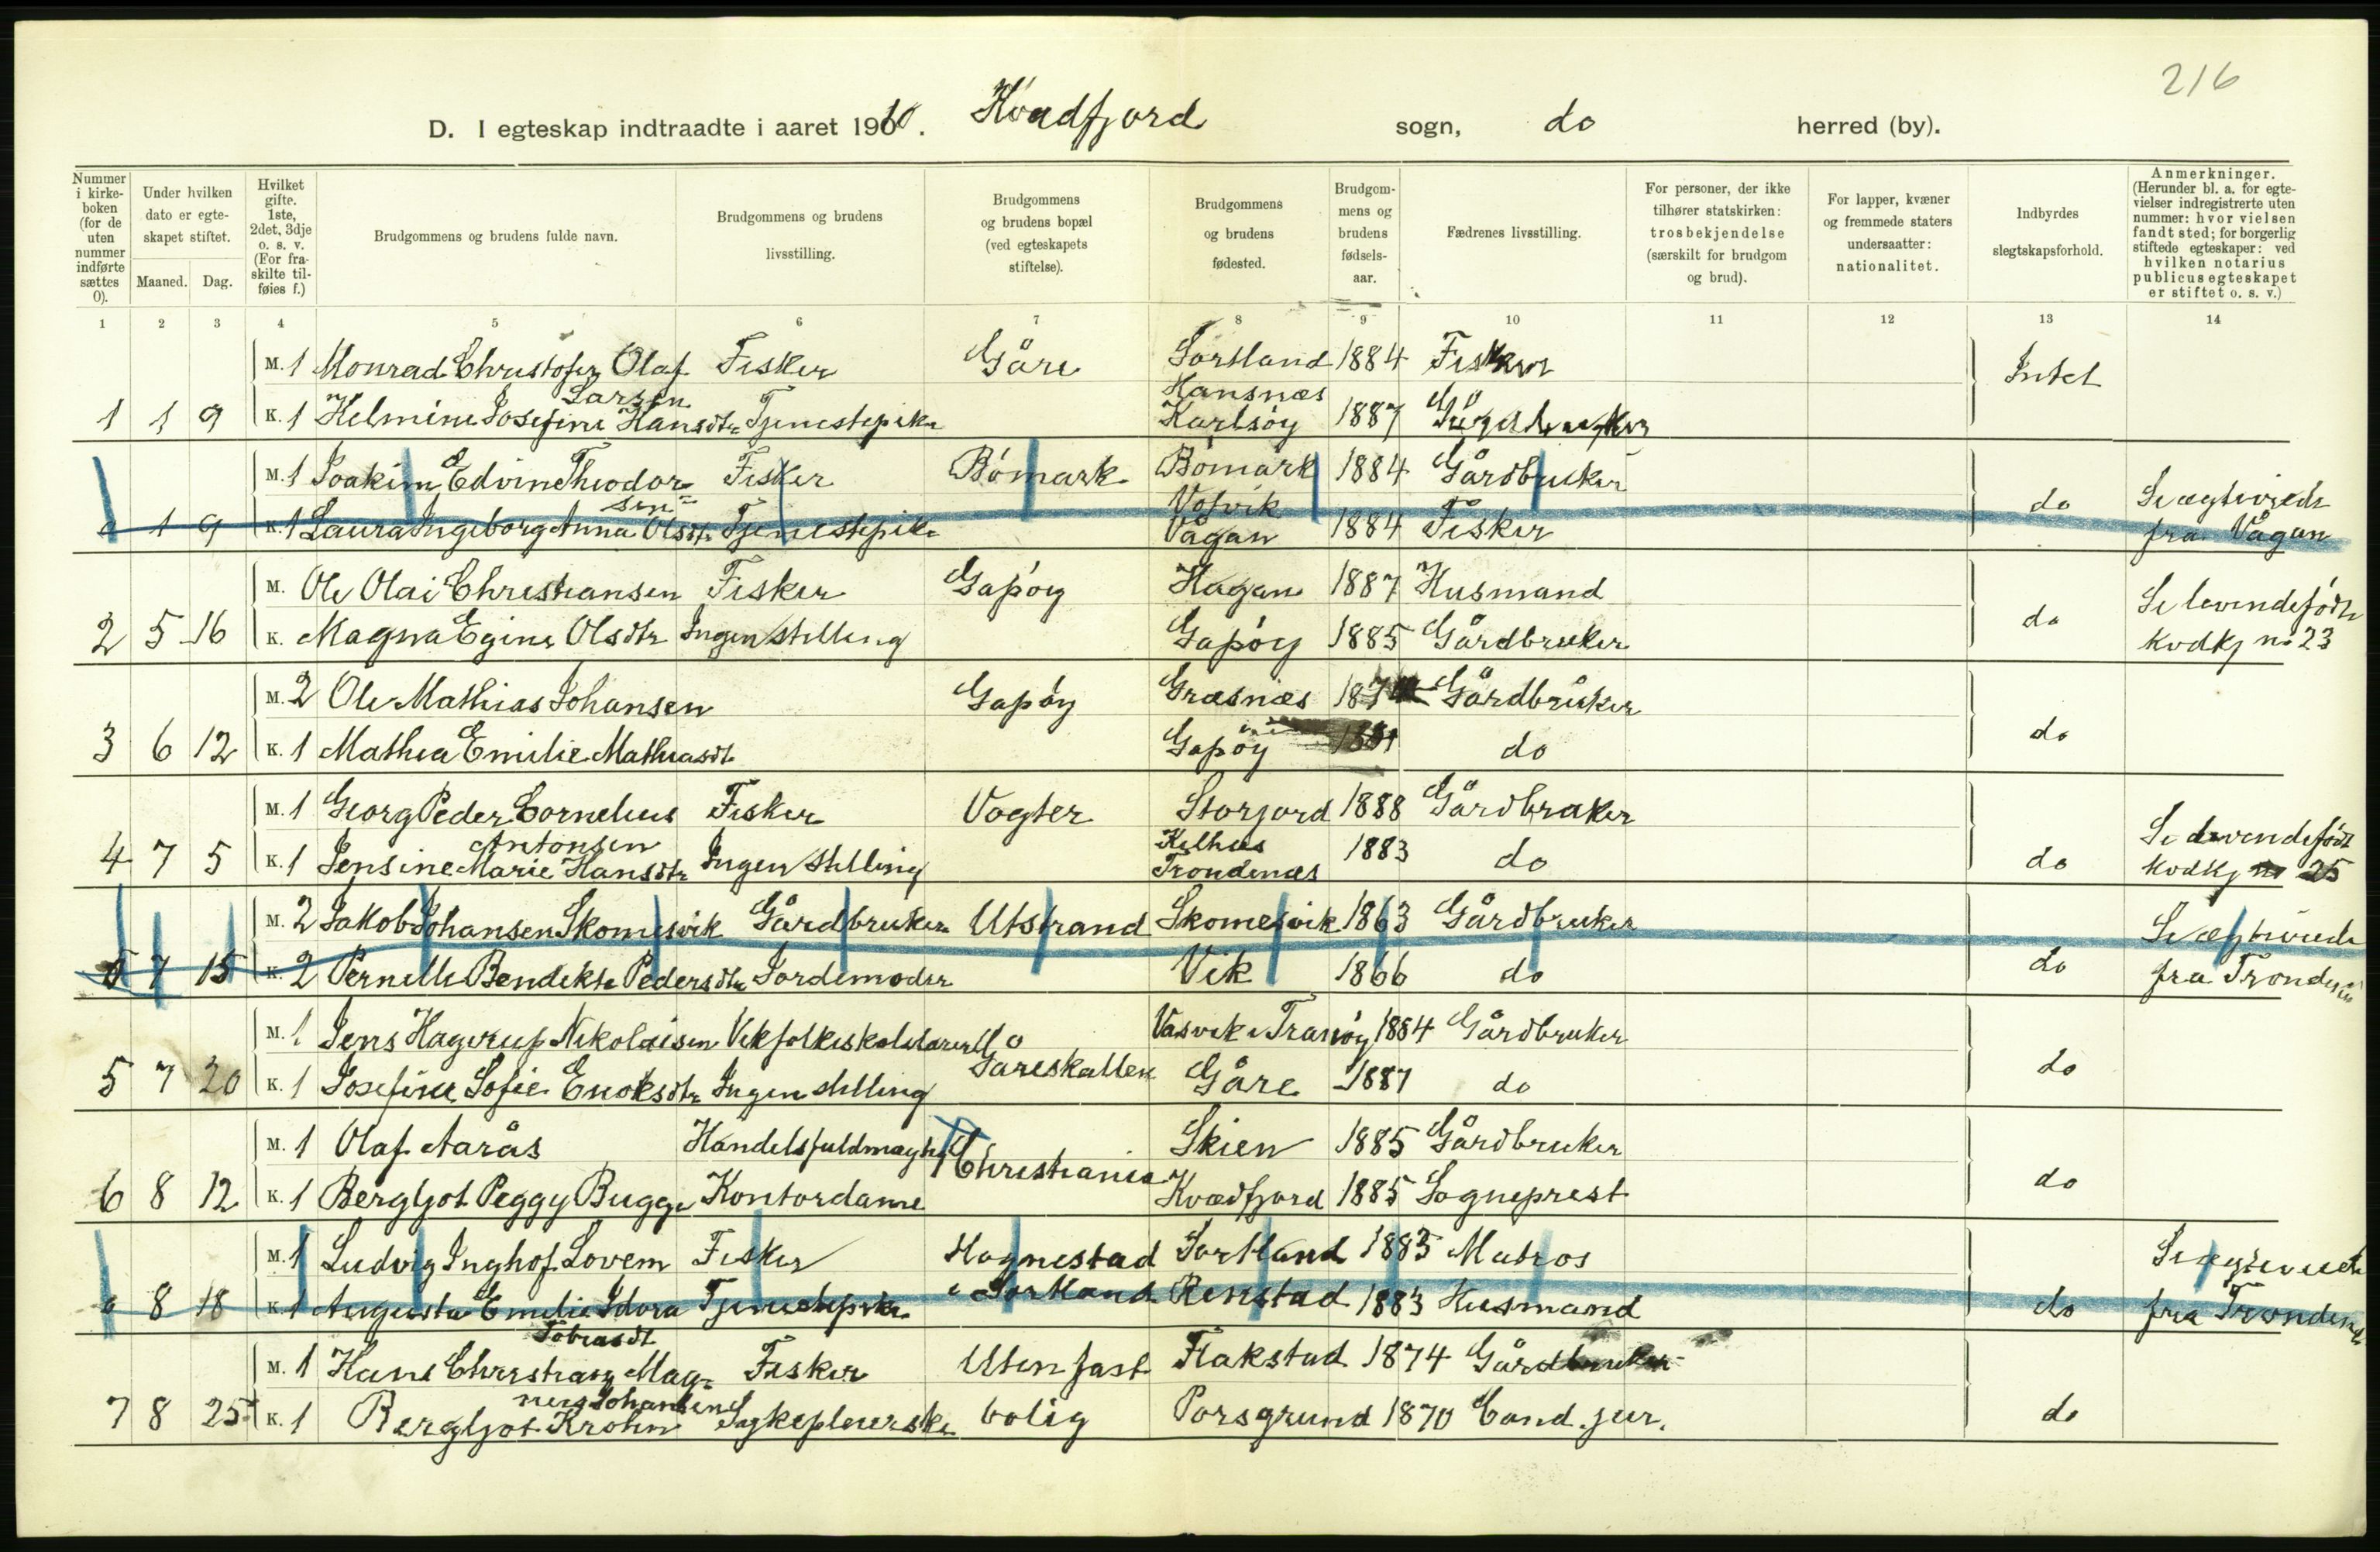 216
D. I egteskap indtraadte i aaret 1910. Kvædfjord sogn, do herred (by).
Nummer i kirke-boken (for de uten nummer indførte sættes 0).
Under hvilken dato er egte-skapet stiftet.
Maaned. Dag.
Hvilket gifte. 1ste, 2det, 3dje o. s. v. (For fra-skilte til-føies f.)
Brudgommens og brudens fulde navn.
Brudgommens og brudens livsstilling.
Brudgommens og brudens bopæl (ved egteskapets stiftelse).
Brudgommens og brudens fødested.
Brudgom-mens og brudens fødsels-aar.
Fædrenes livsstilling.
For personer, der ikke tilhører statskirken: trosbekjendelse (særskilt for brudgom og brud).
For lapper, kvæner og fremmede staters undersaatter: nationalitet.
Indbyrdes slegtskapsforhold.
Anmerkninger. (Herunder bl. a. for egte-vielser indregistrerte uten nummer: hvor vielsen fandt sted; for borgerlig stiftede egteskaper: ved hvilken notarius publicus egteskapet er stiftet o. s. v.)
1 2 3 4 5 6 7 8 9 10 11 12 13 14
M. 1 Monrad Christofer Olaf Larsen Fisker Gåre Sortland 1884 Fisker Intet
1 1 9 K. 1 Helmine Josefine Hansdtr Tjenestepike Hansnæs Karlsöy 1887 Gårdbruker
M. 1 Joakim Edvin Theodor-sen Fisker Bömark Bömark 1884 Gårdbruker do Se ægteviede
0 1 9 K. 1 Laura Ingeborg Anna Olsdtr Tjenestepike Volvik Vågan 1884 Fisker fra Vågan
M. Ole Olai Christiansen Fisker Gapöy Hagan 1887 Husmand do Se levendefödte
2 5 16 K. Magna Egine Olsdtr Ingen stilling Gapöy 1885 Gårdbruker Kvdfj no 23
M. 2 Ole Mathias Johansen Gapöy Græsnæs 1874 Gårdbruker do
3 6 12 K. 1 Mathea Emilie Mathiasdt Gapöy 1881 do
M. 1 Georg Peder Cornelius Antonsen Fisker Vogter Storjord 1888 Gårdbruker do Se levendefödt
4 7 5 K. 1 Jensine Marie Hansdtr Ingen stilling Kilhus Trondenæs 1883 do Kvdfj no 25
M. 2 Jakob Johansen Skomesvik Gårdbruker Utstrand Skomesvik 1863 Gårdbruker do Se ægteviede
5 7 15 K. 2 Pernelle Bendikte Pedersdtr Jordemoder Vik 1866 do fra Trondenæs
M. 1 Jens Hagerup Nikolaisen Vikfolkeskolelærer Gåreskallen Vasvik i Tranöy 1884 Gårdbruker do
5 7 20 K. 1 Josefine Sofie Enoksdtr Ingen stilling Gåre 1887 do
M. 1 Olaf Aarås Handelsfuldmægtig Christiania Skien 1885 Gårdbruker do
6 8 12 K. 1 Bergljot Peggy Bugge Kontordame Kvædfjord 1885 Sogneprest
M. 1 Ludvig Inghof Lovem Fisker Hognestad Sortland 1883 Matros do Se ægteviede
0 8 18 K. 1 Augusta Emilie Idora Tobiasdt Tjenestepike i Sortland Renstad 1883 Husmand fra Trondenæs
M. 1 Hans Christian Mag-nus Johansen Fisker Uten fast Flakstad 1874 Gårdbruker do
7 8 25 K. 1 Bergljot Krohn Sykepleierske bolig Porsgrund 1870 Cand. jur.